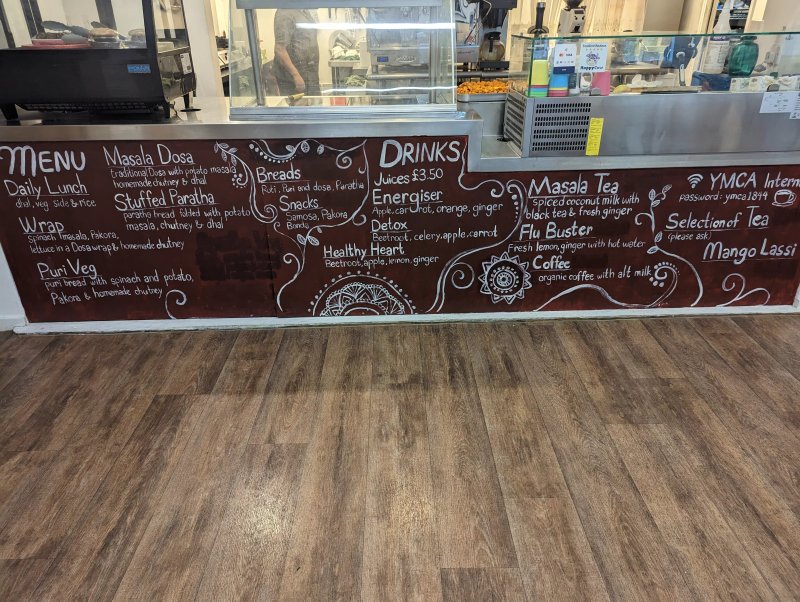 MENU
Daily Lunch
dhal, veg side & rice
Wrap
Spinach, masala, Pakora,
lettuce in a Dosa wrap & homemade chutney
Puri Veg
puri bread with spinach and potato,
Pakora & homemade chutney
Masala Dosa
traditional Dosa with potato masala
homemade chutney & dhal
Stuffed Paratha
paratha bread filled with potato
masala, chutney & dhal
Breads
Roti, Puri and dosa, Paratha
Snacks
Samosa, Pakora
DRINKS
Juices £3.50
Energiser
Apple, carrot, orange, ginger
Detox
Beetroot, celery, apple, carrot
Healthy Heart
Beetroot, apple, lemon, ginger
Masala Tea
Spiced coconut milk with
black tea & fresh ginger
Flu Buster
Fresh lemon, ginger with hot water
Coffee
organic coffee with alt milk
YMCA Intern
password: ymca1844
Selection of Tea
(please ask)
Mango Lassi